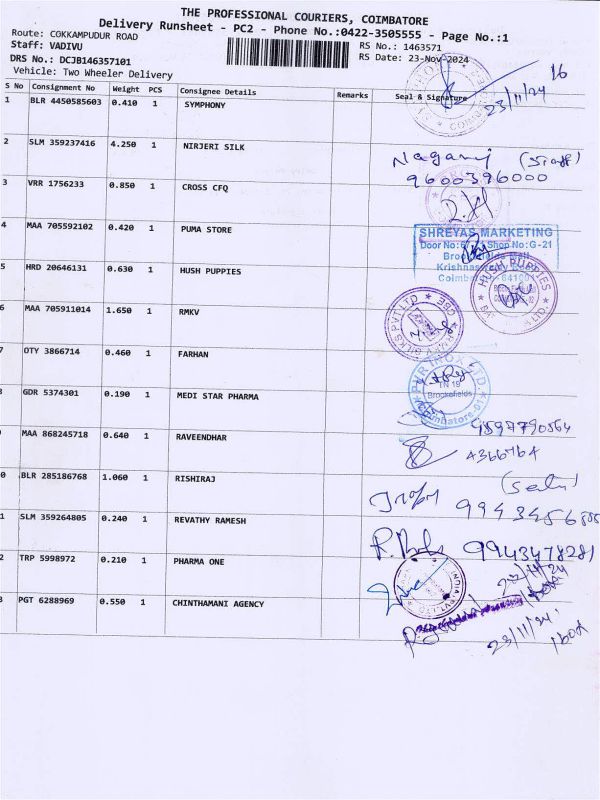 THE PROFESSIONAL COURIERS, COIMBATORE
Delivery Runsheet - PC2 - Phone No.:0422-3505555 - Page No.:1
Route: COKKAMPUDUR ROAD
RS No.: 1463571
Staff: VADIVU
RS Date: 23-Nov-2024
DRS No.: DCJB146357101
Vehicle: Two Wheeler Delivery
16
S No Consignment No Weight PCS Consignee Details Remarks Seal & Signature
23/11/24
1 BLR 4450585603 0.410 1 SYMPHONY
2 SLM 359237416 4.250 1 NIRJERI SILK
9600396000
3 VRR 1756233 0.850 1 CROSS CFQ
4 MAA 705592102 0.420 1 PUMA STORE
SHREYAS MARKETING
Shop No:G-21
5 HRD 20646131 0.630 1 HUSH PUPPIES
HUSH PUPPIES
6 MAA 705911014 1.650 1 RMKV
7 OTY 3866714 0.460 1 FARHAN
PVR INOX LTD
TN 19
Brookefields
Coimbatore-01
8 GDR 5374301 0.190 1 MEDI STAR PHARMA
9 MAA 868245718 0.640 1 RAVEENDHAR
0 BLR 285186768 1.060 1 RISHIRAJ
1 SLM 359264805 0.240 1 REVATHY RAMESH
9943478281
2 TRP 5998972 0.210 1 PHARMA ONE
3 PGT 6288969 0.550 1 CHINTHAMANI AGENCY
23/11/24